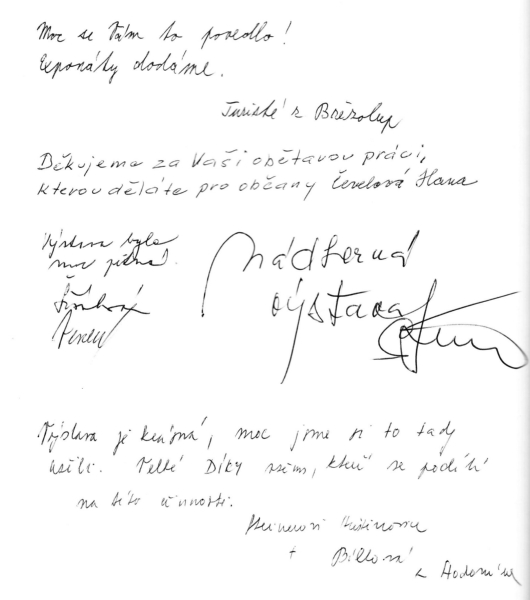 Moc se Vám to povedlo!
Exponáty dodáme.
Turisté z Březolup
Děkujeme za Vaši obětavou práci,
kterou děláte pro občany Hana
Výstava byla
moc pěkná.
Nádherná
výstava
Výstava je krásná, moc jsme si to tady
užili. Velké Díky všem, kteří se podílí
na této činnosti.
+
z Hodonína